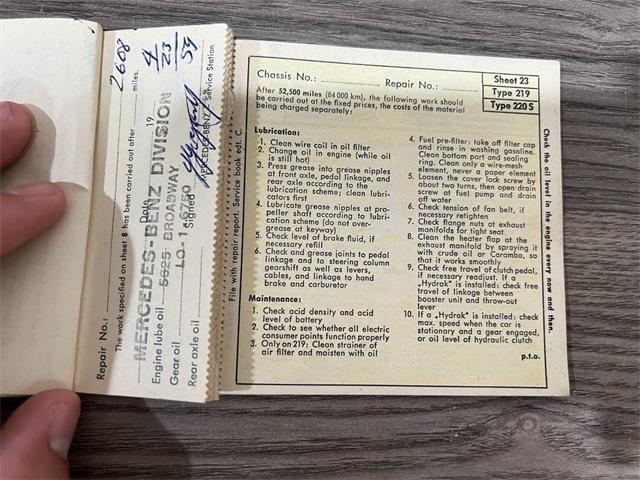 Repair No.:
The work specified on sheet 8 has been carried out after 2608 miles.
Date 4/23 19 59
MERCEDES-BENZ DIVISION
Engine lube oil
5625 BROADWAY
Gear oil
LO
Signed
Rear axle oil
MERCEDES-BENZ Service Station
File with repair report. Service book edt. C.
Chassis No.: Repair No.:
Sheet 23
Type 219
Type 220 S
After 52,500 miles (84 000 km), the following work should
be carried out at the fixed prices, the costs of the material
being charged separately:
Lubrication:
1. Clean wire coil in oil filter
2. Change oil in engine (while oil
is still hot)
3. Press grease into grease nipples
at front axle, pedal linkage, and
rear axle according to the
lubrication scheme; clean lubri-
cators first
4. Lubricate grease nipples at pro-
peller shaft according to lubri-
cation scheme (do not over-
grease at keyway)
5. Check level of brake fluid, if
necessary refill
6. Check and grease joints to pedal
linkage and to steering column
gearshift as well as levers,
cables, and linkage to hand
brake and carburetor
Maintenance:
1. Check acid density and acid
level of battery
2. Check to see whether all electric
consumer points function properly
3. Only on 219: Clean strainer of
air filter and moisten with oil
4. Fuel pre-filter: take off filter cap
and rinse in washing gasoline.
Clean bottom part and sealing
ring. Clean only a wire-mesh
element, never a paper element
5. Loosen the cover lock screw by
about two turns, then open drain
screw at fuel pump and drain
off water
6. Check tension of fan belt, if
necessary retighten
7. Check flange nuts at exhaust
manifolds for tight seat
8. Clean the heater flap at the
exhaust manifold by spraying it
with crude oil or Caramba, so
that it works smoothly
9. Check free travel of clutch pedal,
if necessary readjust. If a
„Hydrak" is installed: check free
travel of linkage between
booster unit and throw-out
lever
10. If a „Hydrak" is installed: check
max. speed when the car is
stationary and a gear engaged,
or oil level of hydraulic clutch
p.t.o.
Check the oil level in the engine every now and then.